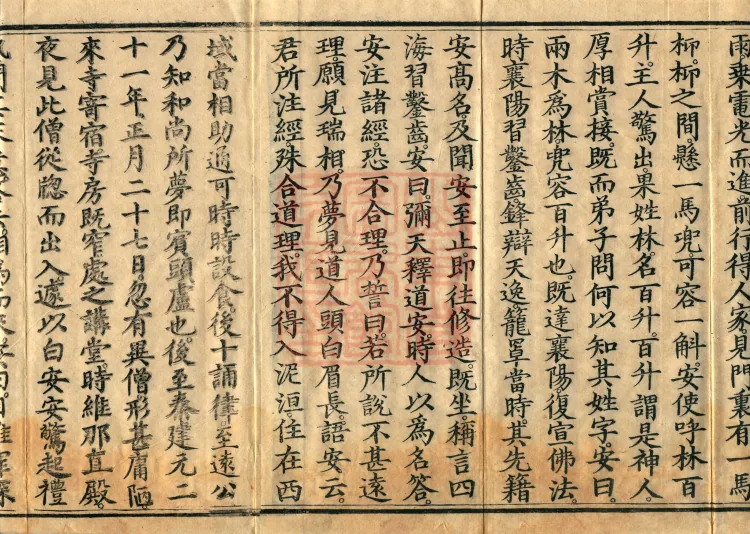 雨乘電光而進前行得人家見門裏有一馬
枊枊之間懸一馬兠可容一斛安使呼林百
升主人驚出果姓林名百升百升謂是神人
厚相賞接既而弟子問何以知其姓字安曰
兩木為林兠容百升也既達襄陽復宣佛法
時襄陽習鑿齒鋒辯天逸籠罩當時其先籍
安髙名及聞安至止即往修造既坐稱言四
海習鑿齒安曰彌天釋道安時人以為名答
安注諸經恐不合理乃誓曰若所說不甚遠
理願見瑞相乃夢見道人頭白眉長語安云
君所注經殊合道理我不得入泥洹住在西
域當相助通可時時設食後十誦律至遠公
乃知和尚所夢即賓頭盧也後至秦建元二
十一年正月二十七日忽有異僧形甚庸陋
來寺寄宿寺房既窄處之講堂時維那直殿
夜見此僧從牎而出入遽以白安安驚起禮